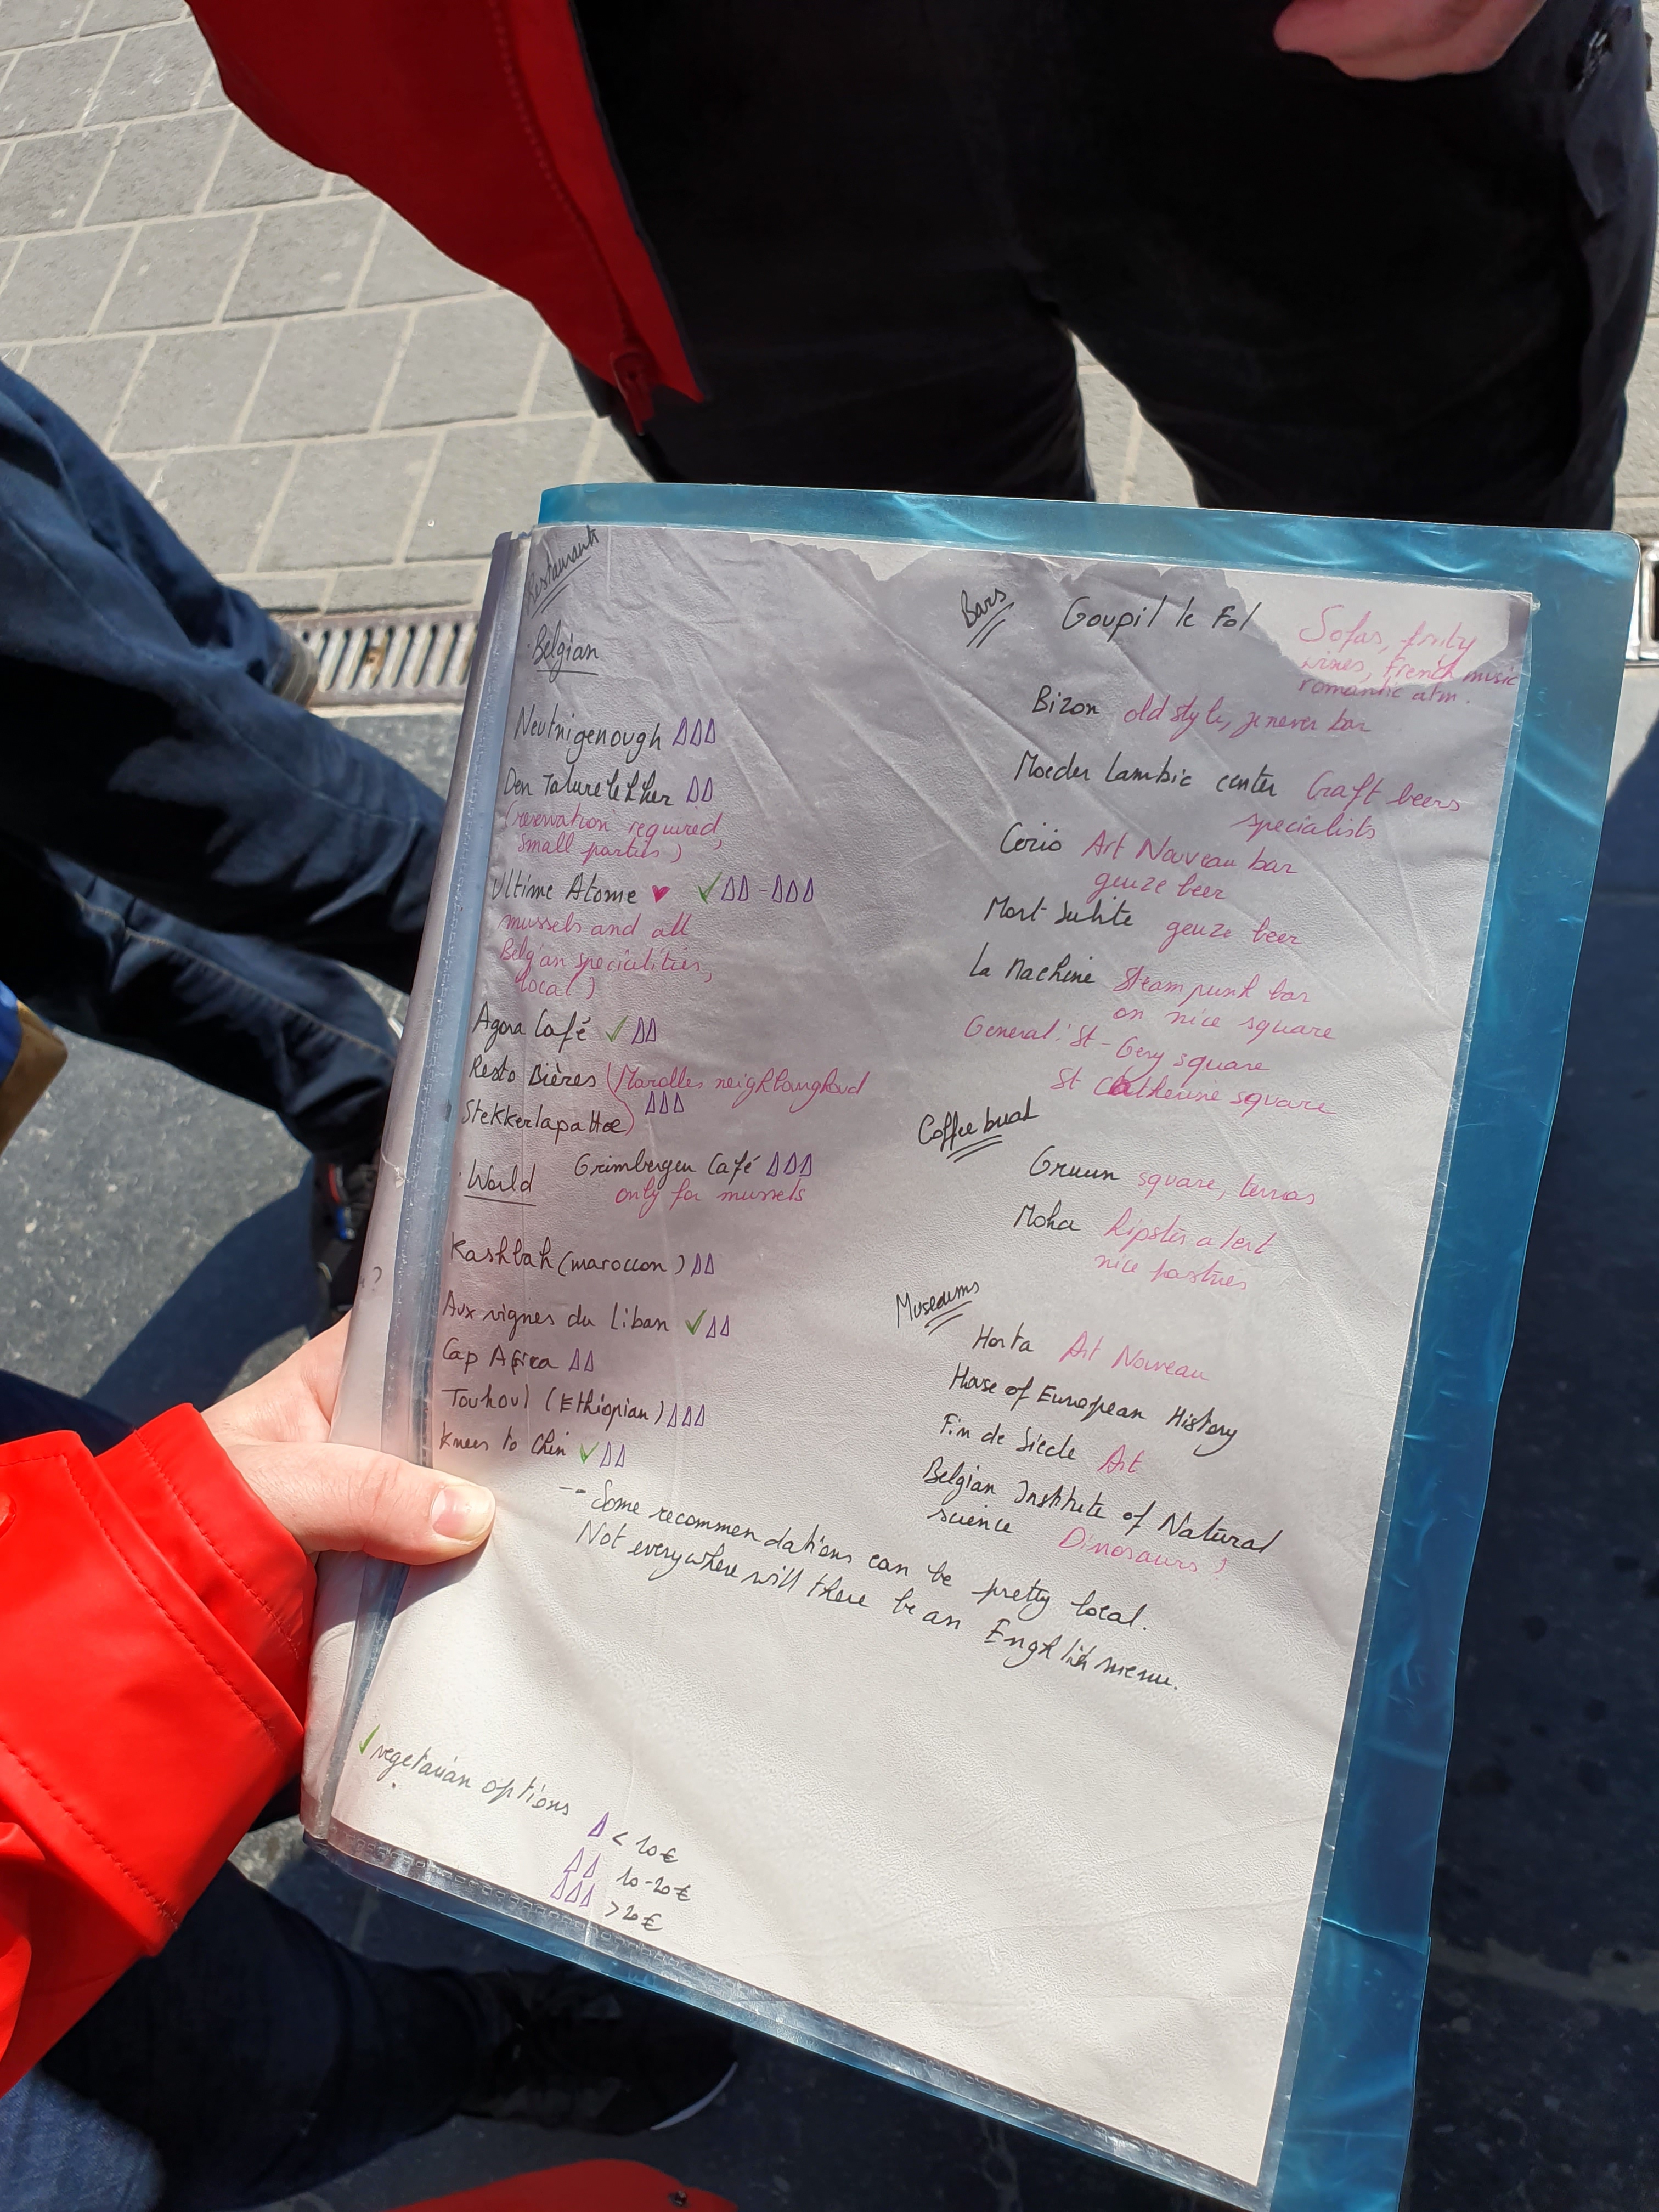 Restaurants
· Belgian
Neutnigenough
Den
(reservation required,
small parties)
Ultime Atome ♥ ✓ -
mussels and all
Belgian specialities,
local)
Agora Café ✓
Resto Bières (Marolles
Stekkerlapatte)
Grimbergen Café
only for mussels
· World
Kashbah (maroccon)
Aux vignes du Liban ✓
Cap Africa
Toukoul (Ethiopian)
Knees to Chin ✓
-- Some recommendations can be pretty local.
Not everywhere will there be an English menu.
✓ vegetarian options
< 10€
10-20€
> 20€
Bars
Goupil le Fol Sofas, fruity
wines, French music
romantic atm.
Bizon old style, jenever bar
Moeder Lambic center Craft beers
specialists
Cirio Art Nouveau bar
geuze beer
Mort Subite geuze beer
La Machine Steampunk bar
on nice square
General: St-Gery square
St Catherine square
Coffee
Gruun square, terras
Moka hipster alert
nice pastries
Museums
Horta Art Nouveau
House of European History
Fin de Siecle Art
Belgian Institute of Natural
science Dinosaurs!